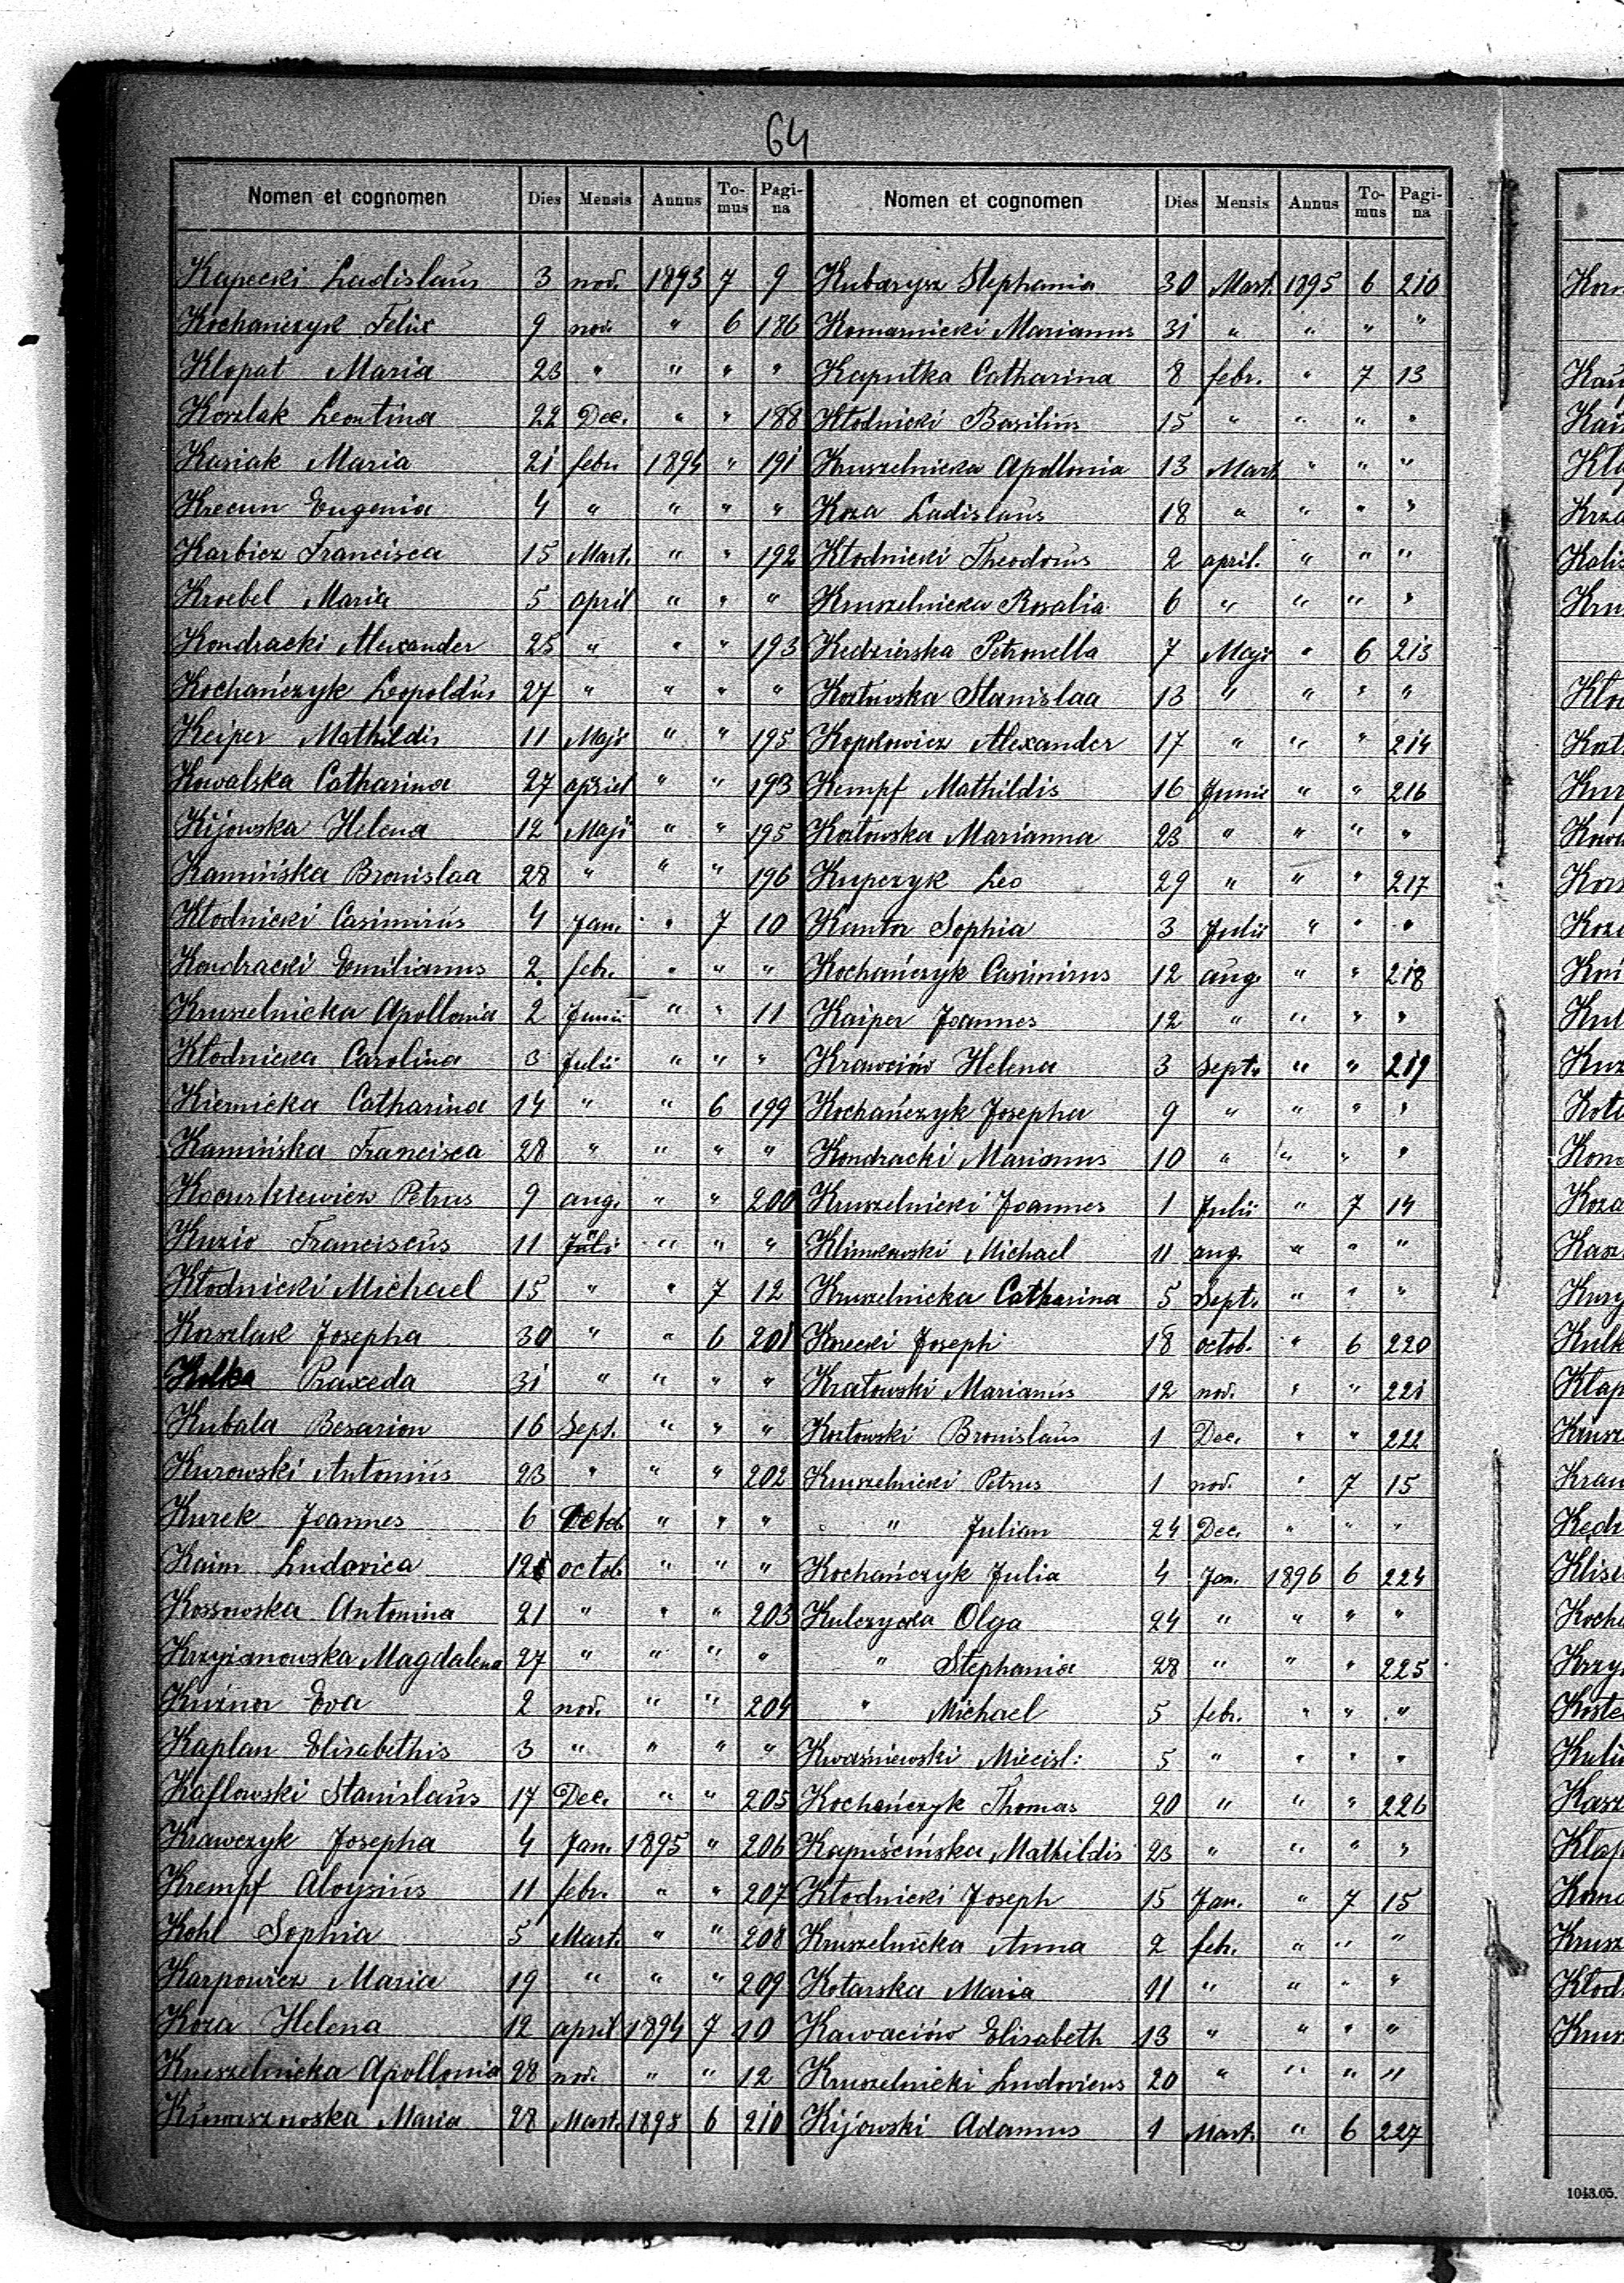 64
Nomen et cognomen Dies Mensis Annus To-mus Pagi-na
Kapecki Ladislaus 3 nov. 1893 7 9
Kochańczyk Felix 9 nov. " 6 186
Klopat Maria 23 " " " "
Koszlak Leontina 22 Dec. " " 188
Kasiak Maria 21 febr. 1894 " 191
Krecun Eugenia 4 " " " "
Karbicz Francisca 15 Mart. " " 192
Kroebel Maria 5 april " " "
Kondracki Alexander 25 " " " 193
Kochańczyk Leopoldus 27 " " " "
Keiper Mathildis 11 Maji " " 195
Kowalska Catharina 27 april " " 193
Kijowska Helena 12 Maji " " 195
Kamińska Bronislaa 28 " " " 196
Kłodnicki Casimirus 4 Jan. " 7 10
Kondracki Emilianus 2 febr. " " "
Kruszelnicka Apollonia 2 Junii " " 11
Kłodnicka Carolina 3 Julii " " "
Kiernicka Catharina 14 " " 6 199
Kamińska Francisca 28 " " " "
Kocurkiewicz Petrus 9 aug. " " 200
Kuzio Franciscus 11 Juli " " "
Kłodnicki Michael 15 " " 7 12
Koszlak Josepha 30 " " 6 201
Praxeda 31 " " " "
Kubala Besarion 16 Sept. " " "
Kurowski Antonius 23 " " " 202
Kurek Joannes 6 Octob " " "
Kaim Ludovica 12 octob " " "
Kossowska Antonina 21 " " " 203
Krzyżanowska Magdalena 27 " " " "
Kuźna Eva 2 nov. " " 204
Kaplan Elisabethis 3 " " " "
Kaflowski Stanislaus 17 Dec. " " 205
Krawczyk Josepha 4 Jan. 1895 " 206
Krempf Aloysius 11 febr. " " 207
Kohl Sophia 5 Mart. " " 208
Karpowicz Maria 19 " " " 209
Koza Helena 12 april 1894 7 10
Kruszelnicka Apollonia 28 nov. " " 12
Maria 28 Mart. 1895 6 210
Nomen et cognomen Dies Mensis Annus To-mus Pagi-na
Kubarysz Stephania 30 Mart. 1895 6 210
Komarnicki Marianus 31 " " " "
Kaputka Catharina 8 febr. " 7 13
Kłodnicki Basilius 15 " " " "
Kruszelnicka Apollonia 13 Mart " " "
Koza Ladislaus 18 " " " "
Kłodnicki Theodorus 2 april. " " "
Kruszelnicka Rosalia 6 " " " "
Kedzierska Petronella 7 Maji " 6 213
Kozłowska Stanislaa 13 " " " "
Kopkowicz Alexander 17 " " " 214
Kempf Mathildis 16 Junii " " 216
Kozłowska Marianna 23 " " " "
Kupczyk Leo 29 " " " 217
Kantor Sophia 3 Julii " " "
Kochańczyk Casimirus 12 aug. " " 218
Kaiper Joannes 12 " " " "
Krawciów Helena 3 Sept. " " 219
Kochańczyk Josepha 9 " " " "
Kondracki Marianus 10 " " " "
Kruszelnicki Joannes 1 Julii " 7 14
Klimkowski Michael 11 aug. " " "
Kruszelnicka Catharina 5 Sept. " " "
Korecki Joseph 18 octob. " 6 220
Kratowski Marianus 12 nov. " " 221
Kozłowski Bronislaus 1 Dec. " " 222
Kruszelnicki Petrus 1 nov. " 7 15
" Julian 24 Dec. " " "
Kochańczyk Julia 4 Jan. 1896 6 224
Kulczycka Olga 24 " " " "
" Stephania 28 " " " 225
" Michael 5 febr. " " "
Kwaśniewski Miecisl: 5 " " " "
Kochańczyk Thomas 20 " " " 226
Kapuścińska Mathildis 23 " " " "
Kłodnicki Joseph 15 Jan. " 7 15
Kruszelnicka Anna 2 febr. " " "
Kotarska Maria 11 " " " "
Kawaciów Elisabeth 13 " " " "
Kruszelnicki Ludovicus 20 " " " "
Kijowski Adamus 1 Mart. " 6 227
1043.05.